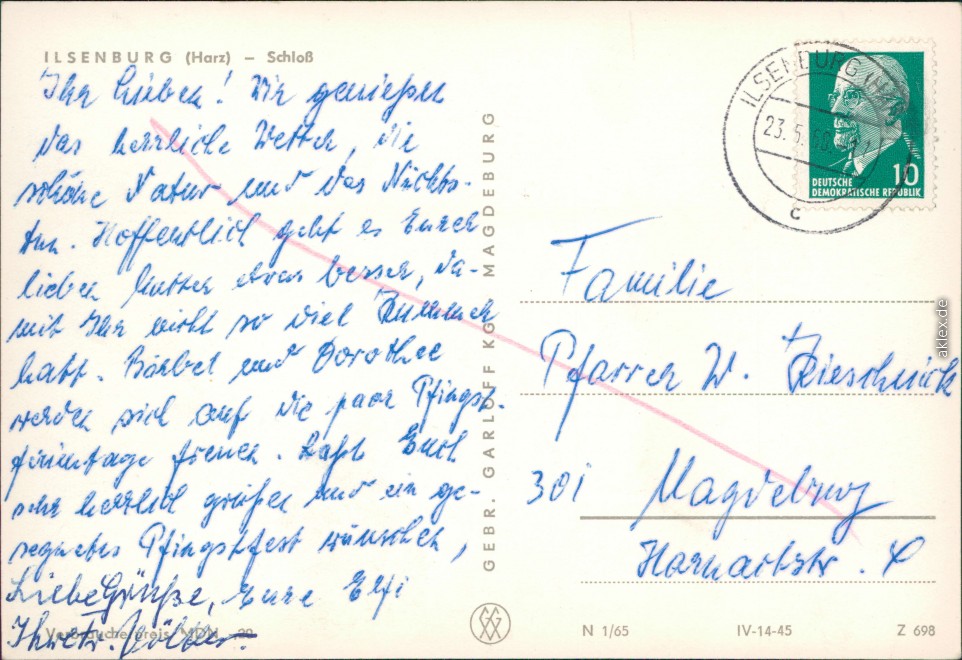 ILSENBURG (Harz) – Schloß
Ihr Lieben! Wir genießen
das herrliche Wetter, die
schöne Natur und das Nichts-
tun. Hoffentlich geht es Eurer
lieben Mutter etwas besser, da-
mit Ihr nicht so viel Kummer
habt. Bärbel und Dorothee
werden sich auf die paar Pfingst-
ferientage freuen. Laßt Euch
sehr herzlich grüßen und ein ge-
segnetes Pfingstfest wünschen,
Liebe Grüße, Eure Elfi
Verbraucherpreis MDN -,20
GEBR. GARLOFF KG MAGDEBURG
ILSENBURG (HARZ)
23.5.
c
10
DEUTSCHE
DEMOKRATISCHE REPUBLIK
Familie
Pfarrer W.
301 Magdeburg
N 1/65 IV-14-45 Z 698
aklex.de